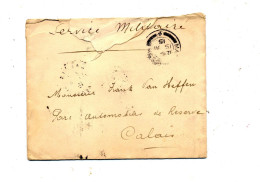 Service Militaire
Monsieur Frank Van Heffen
Parc automobiles de Reserve
Calais